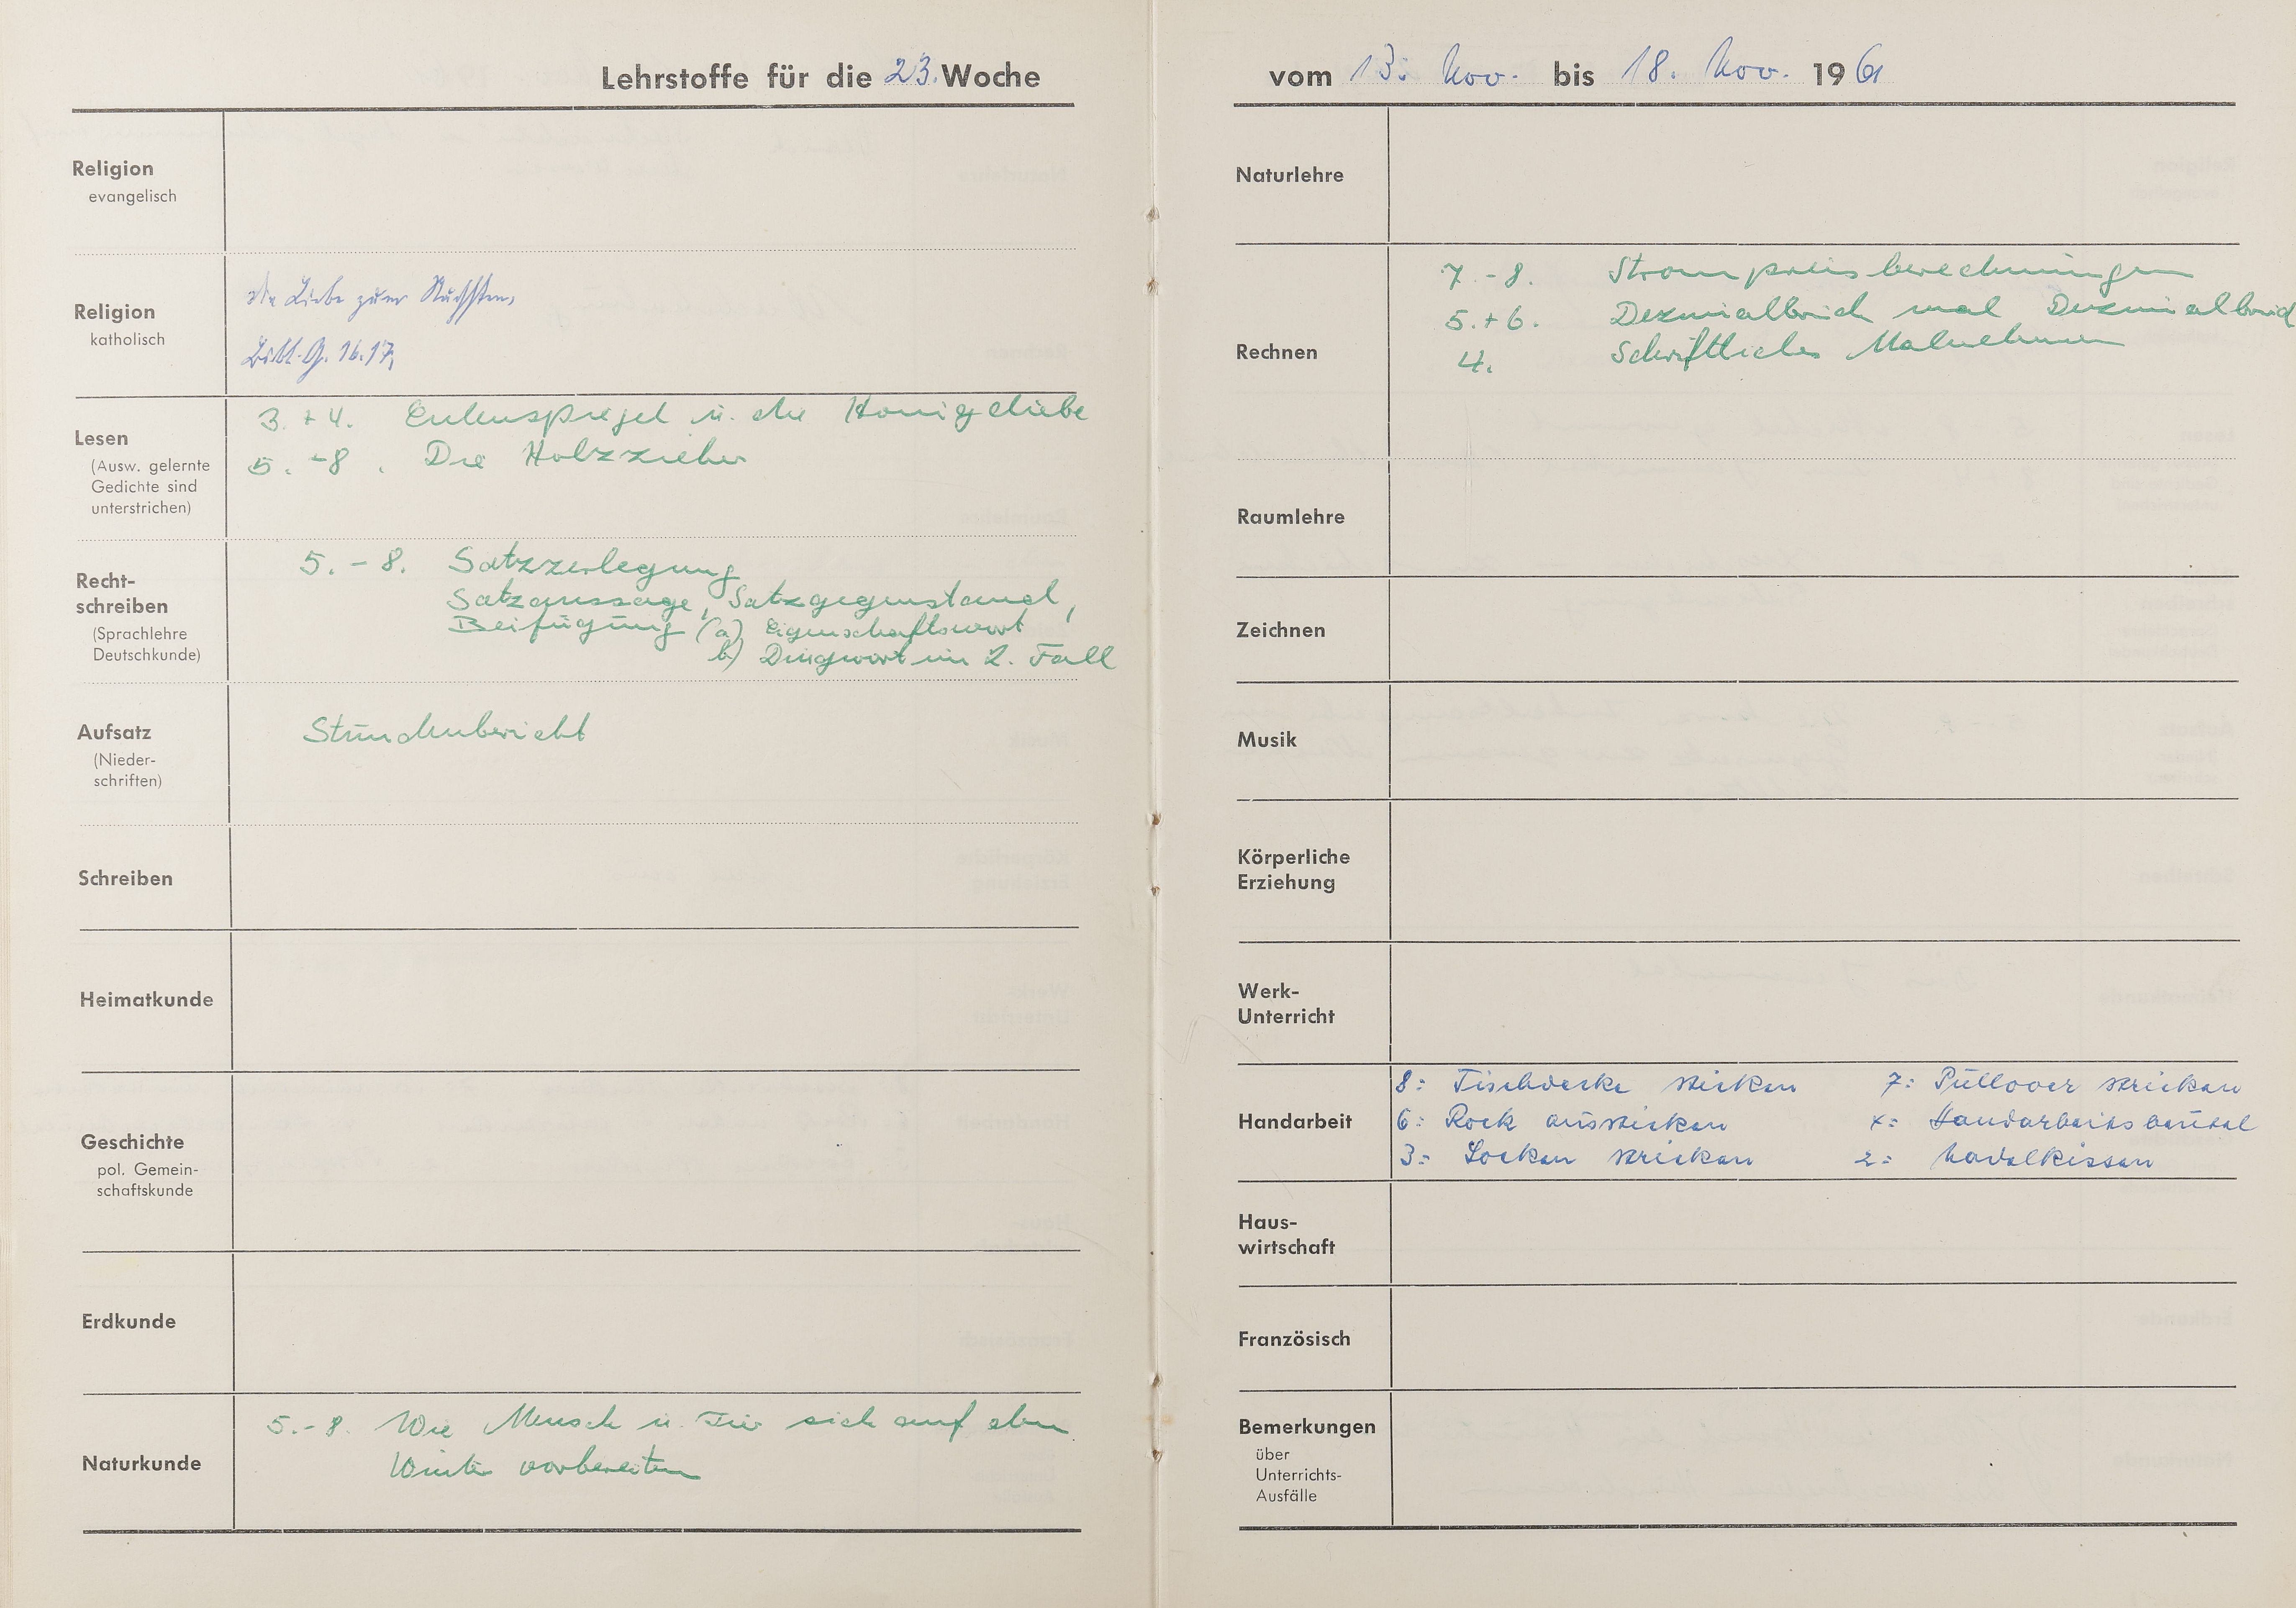 Lehrstoffe für die 23. Woche
Religion
evangelisch
Religion
katholisch
Die Liebe zum Nächsten,
Bibl. G. 16.17,
Lesen
(Ausw. gelernte
Gedichte sind
unterstrichen)
3. + 4. Eulenspiegel u. die Honigdiebe
5. - 8. Die Holzzieher
Recht-
schreiben
(Sprachlehre
Deutschkunde)
5. - 8. Satzzerlegung
Satzaussage, Satzgegenstand,
Beifügung (a) Eigenschaftswort
b) Dingwort im 2. Fall
Aufsatz
(Nieder-
schriften)
Stundenbericht
Schreiben
Heimatkunde
Geschichte
pol. Gemein-
schaftskunde
Erdkunde
Naturkunde
5. - 8. Wie Mensch u. Tier sich auf den
Winter vorbereiten
vom 13. Nov. bis 18. Nov. 1961
Naturlehre
Rechnen
7. - 8. Strompreisberechnungen
5. + 6. Dezimalbruch mal Dezimalbruch
4. Schriftliches Malnehmen
Raumlehre
Zeichnen
Musik
Körperliche
Erziehung
Werk-
Unterricht
Handarbeit
8: Tischdecke sticken 7: Pullover stricken
6: Rock aussticken 4: Handarbeitsbeutel
3: Socken stricken 2: Nadelkissen
Haus-
wirtschaft
Französisch
Bemerkungen
über
Unterrichts-
Ausfälle